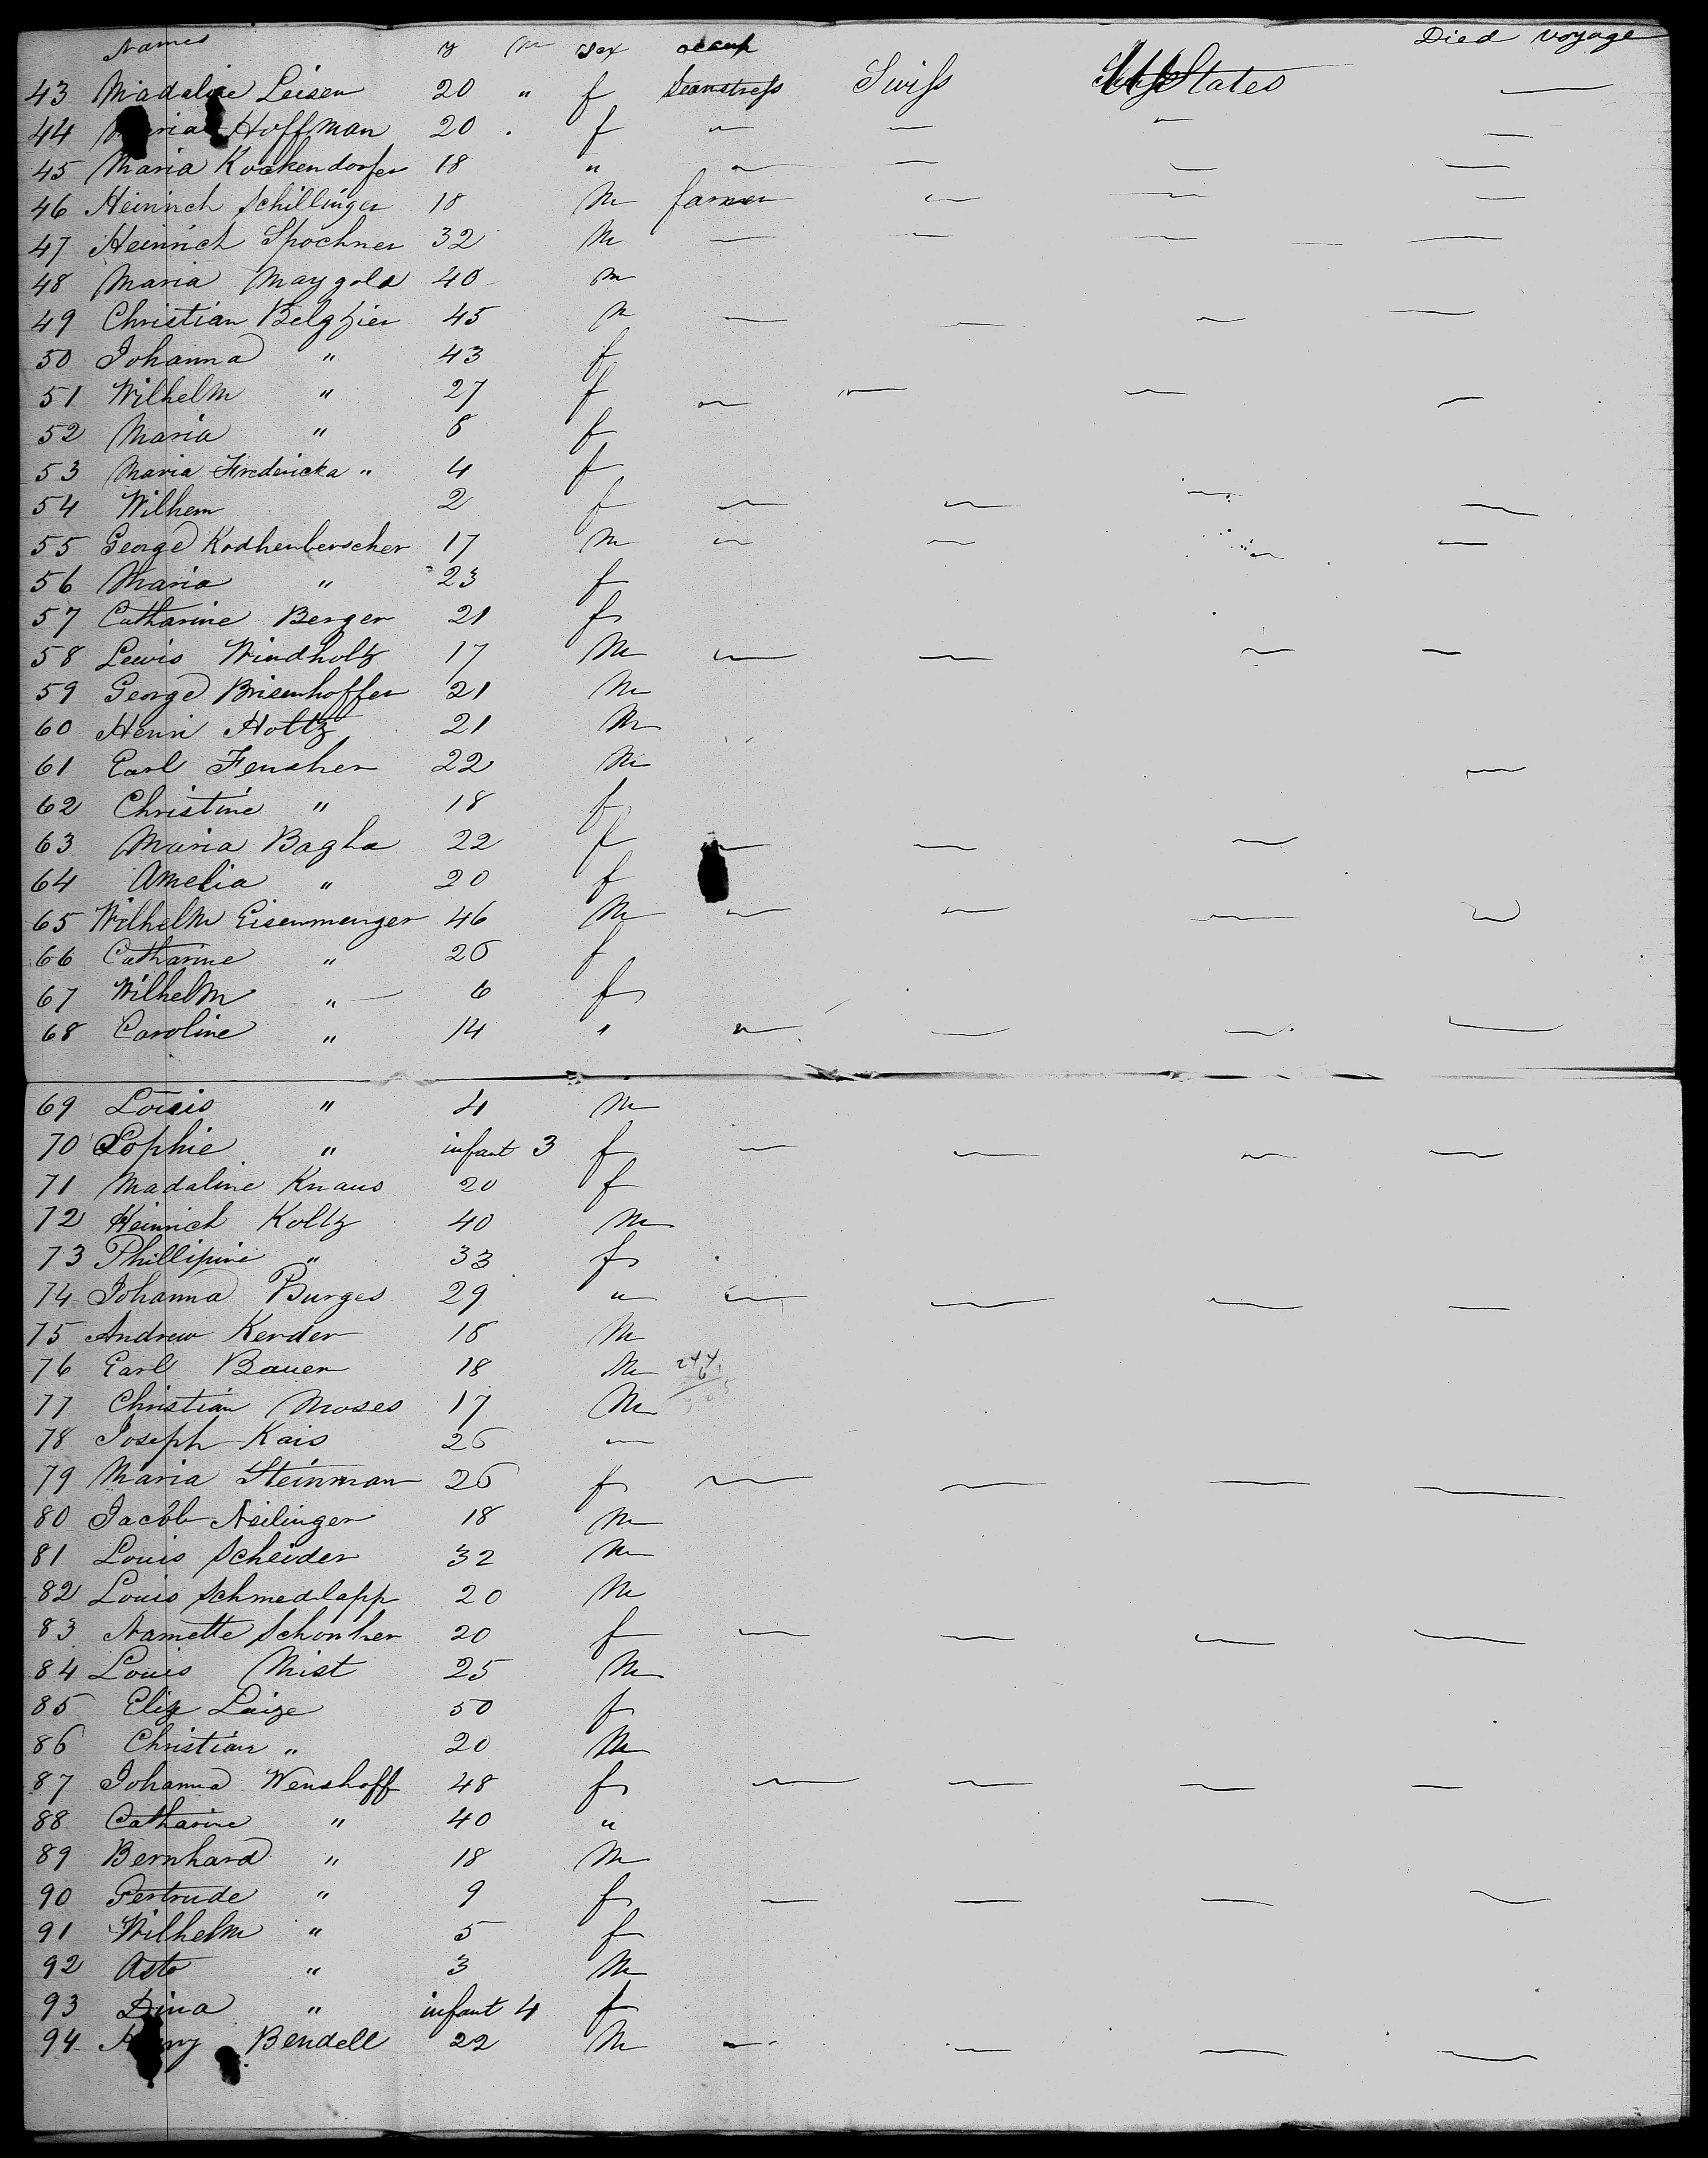 Names y m sex occup Died voyage
43 Madaline Leisen 20 " f Seamstress Swiss States —
44 Maria Hoffman 20 . f — — — —
45 Maria Kockendorfer 18 " — — — —
46 Heinrich Schillinger 18 M farmer — — —
47 Heinrich Spochner 32 M — — — —
48 Maria Maygold 40 m
49 Christian Belgzier 45 M — — — —
50 Johanna " 43 f
51 Wilhelm " 27 f — — — —
52 Maria " 8 f
53 Maria Fredericka " 4 f
54 Wilhem 2 f — — — —
55 George Kodhenberscher 17 M — — — —
56 Maria " 23 f
57 Catharine Berger 21 f
58 Lewis Windholtz 17 M — — — —
59 George Brisenhoffer 21 M
60 Henri Holtz 21 M
61 Carl Feusher 22 M —
62 Christine " 18 f
63 Maria Bagha 22 f — — —
64 Amelia " 20 f
65 Wilhelm Eisenmenger 46 M — — — —
66 Catharine " 26 f
67 Wilhelm " 6 f
68 Caroline " 14 " — — — —
69 Louis " 4 M
70 Sophie " infant 3 f — — — —
71 Madaline Knaus 20 f
72 Heinrich Koltz 40 M
73 Phillipine " 33 f
74 Johanna Burges 29 " — — — —
75 Andrew Kerder 18 M
76 Carl Bauer 18 M 244
77 Christian Moses 17 M
78 Joseph Kais 26 —
79 Maria Steinman 26 f — — — —
80 Jacob Neilinger 18 M
81 Louis Scheider 32 M
82 Louis Schmedlapp 20 M
83 Namette Schonher 20 f — — — —
84 Louis Mist 25 M
85 Eliz Laize 50 f
86 Christian " 20 M
87 Johanna Wenshoff 48 f — — — —
88 Catharine " 40 "
89 Bernhard " 18 M
90 Gertrude " 9 f — — — —
91 Wilhelm " 5 f
92 Asto " 3 M
93 Dina " infant 4 f
94 Bendell 22 M — — — —